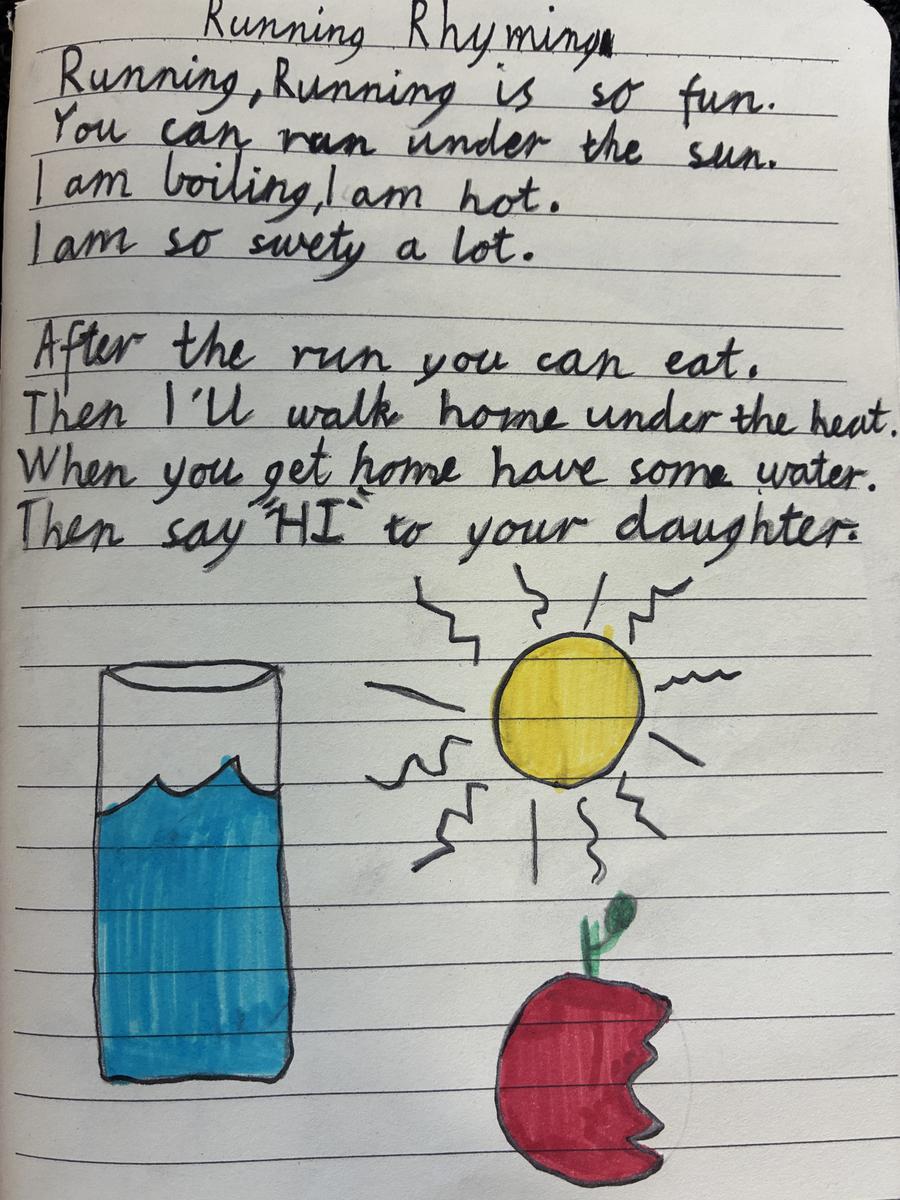 Running Rhyming
Running, Running is so fun.
You can run under the sun.
I am boiling, I am hot.
I am so swety a lot.
After the run you can eat.
Then I'll walk home under the heat.
When you get home have some water.
Then say "HI" to your daughter.